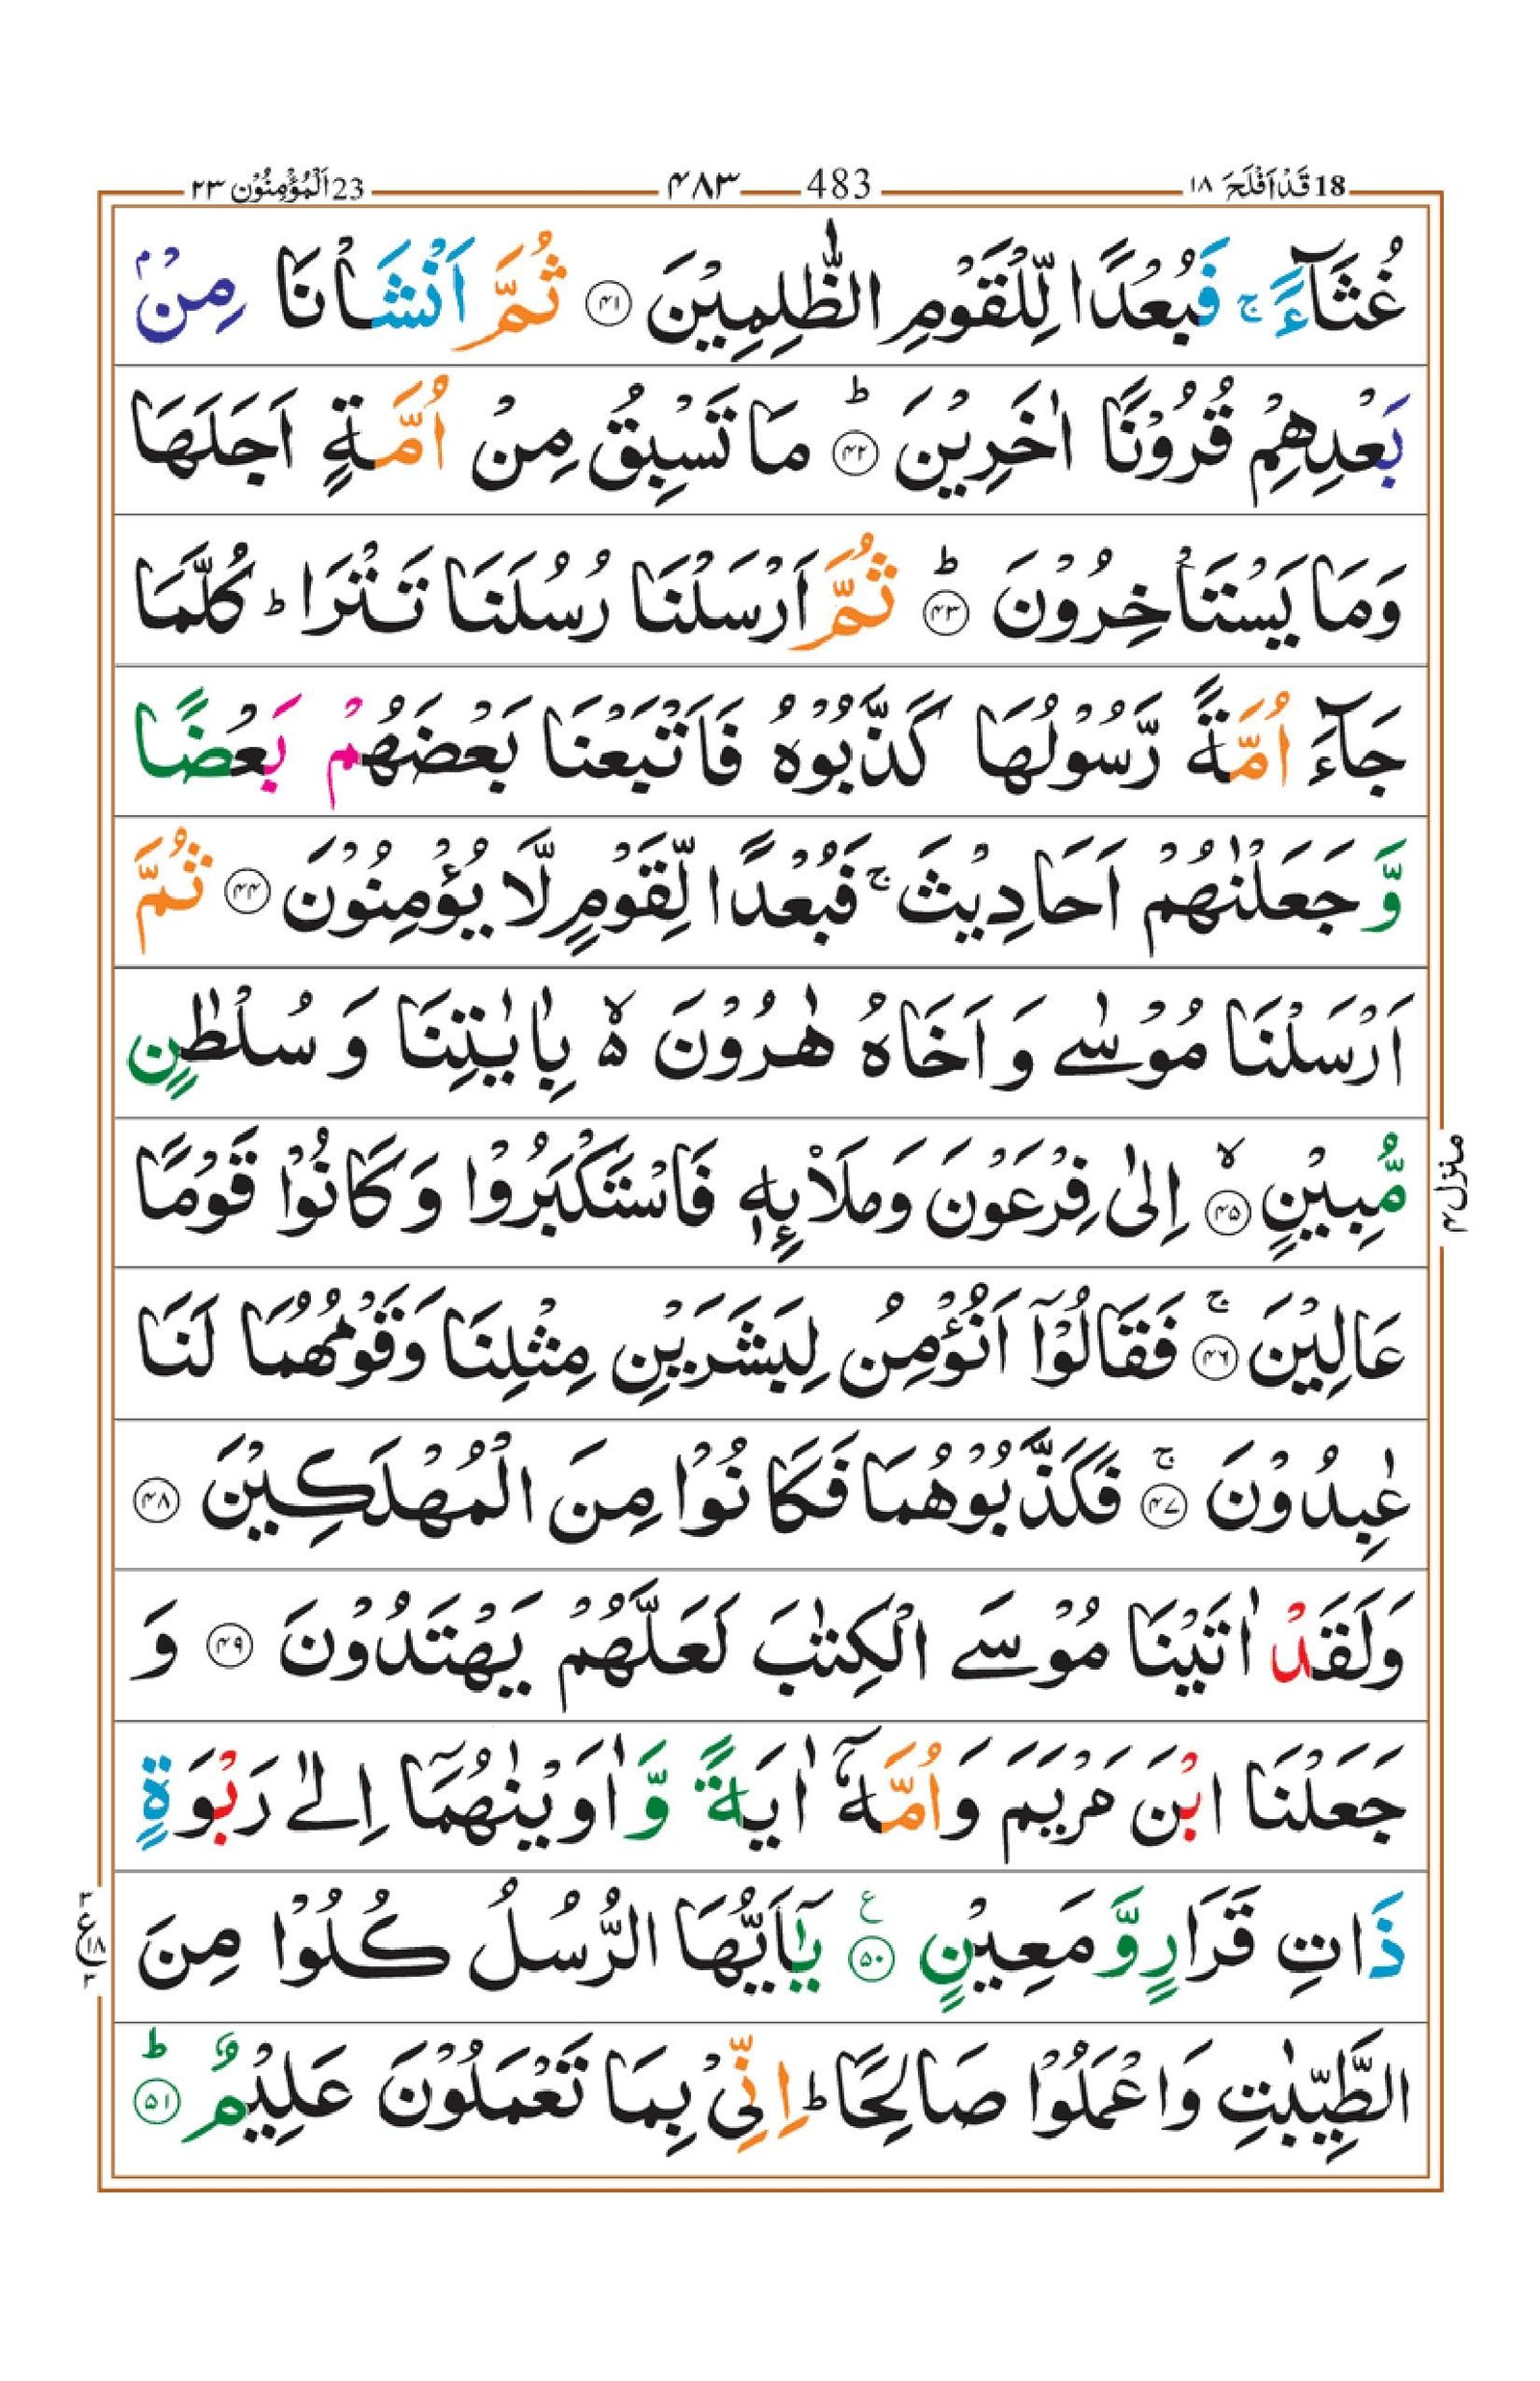 18 قَدْ اَفْلَحَ ١٨ 483 ۴۸۳ 23 اَلْمُؤْمِنُوْن ٢٣
غُثَآءً ۚ فَبُعْدًا لِّلْقَوْمِ الظّٰلِمِيْنَ ﴿۴۱﴾ ثُمَّ اَنْشَاْنَا مِنْۢ
بَعْدِهِمْ قُرُوْنًا اٰخَرِيْنَ ﴿۴۲﴾ؕ مَا تَسْبِقُ مِنْ اُمَّةٍ اَجَلَهَا
وَمَا يَسْتَاْخِرُوْنَ ﴿۴۳﴾ؕ ثُمَّ اَرْسَلْنَا رُسُلَنَا تَتْرَا ؕ كُلَّمَا
جَآءَ اُمَّةً رَّسُوْلُهَا كَذَّبُوْهُ فَاَتْبَعْنَا بَعْضَهُمْ بَعْضًا
وَّ جَعَلْنٰهُمْ اَحَادِيْثَ ۚ فَبُعْدًا لِّقَوْمٍ لَّا يُؤْمِنُوْنَ ﴿۴۴﴾ ثُمَّ
اَرْسَلْنَا مُوْسٰى وَ اَخَاهُ هٰرُوْنَ ۙ۬ بِاٰيٰتِنَا وَ سُلْطٰنٍ
مُّبِيْنٍ ﴿۴۵﴾ۙ اِلٰى فِرْعَوْنَ وَمَلَا۟ئِهٖ فَاسْتَكْبَرُوْا وَ كَانُوْا قَوْمًا
عَالِيْنَ ﴿۴۶﴾ۚ فَقَالُوْۤا اَنُؤْمِنُ لِبَشَرَيْنِ مِثْلِنَا وَقَوْمُهُمَا لَنَا
عٰبِدُوْنَ ﴿۴۷﴾ۚ فَكَذَّبُوْهُمَا فَكَانُوْا مِنَ الْمُهْلَكِيْنَ ﴿۴۸﴾
وَلَقَدْ اٰتَيْنَا مُوْسَى الْكِتٰبَ لَعَلَّهُمْ يَهْتَدُوْنَ ﴿۴۹﴾ وَ
جَعَلْنَا ابْنَ مَرْيَمَ وَاُمَّهٗۤ اٰيَةً وَّ اٰوَيْنٰهُمَاۤ اِلٰى رَبْوَةٍ
ذَاتِ قَرَارٍ وَّ مَعِيْنٍ ﴿۵۰﴾ ع يٰۤاَيُّهَا الرُّسُلُ كُلُوْا مِنَ
الطَّيِّبٰتِ وَاعْمَلُوْا صَالِحًا ؕ اِنِّىْ بِمَا تَعْمَلُوْنَ عَلِيْمٌ ﴿۵۱﴾ؕ
منزل ۴
۳ ع ۱۸ ۳